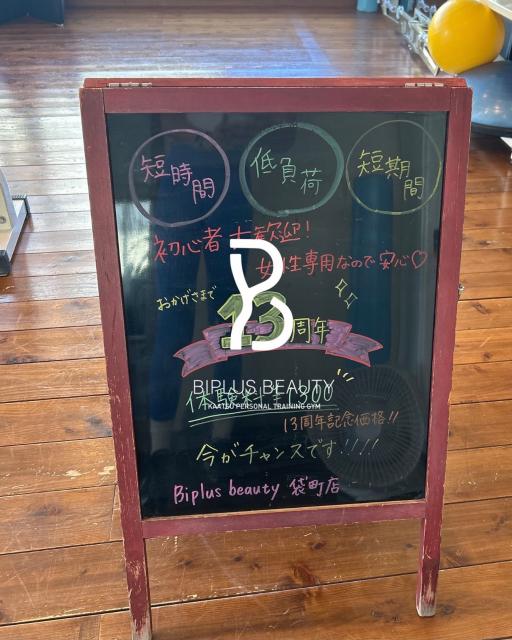 短時間
低負荷
短期間
初心者大歓迎!
女性専用なので安心♡
おかげさまで
13周年
BIPLUS BEAUTY
KAATSU PERSONAL TRAINING GYM
体験料¥1300
13周年記念価格!!
今がチャンスです!!!!
Biplus beauty 袋町店